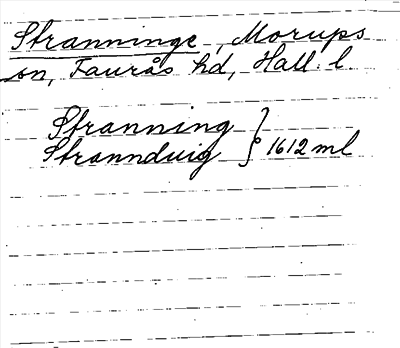 Stranninge, Morups
sn, Faurås hd, Hall. l.
Stranning
Strannduig } 1612 ml